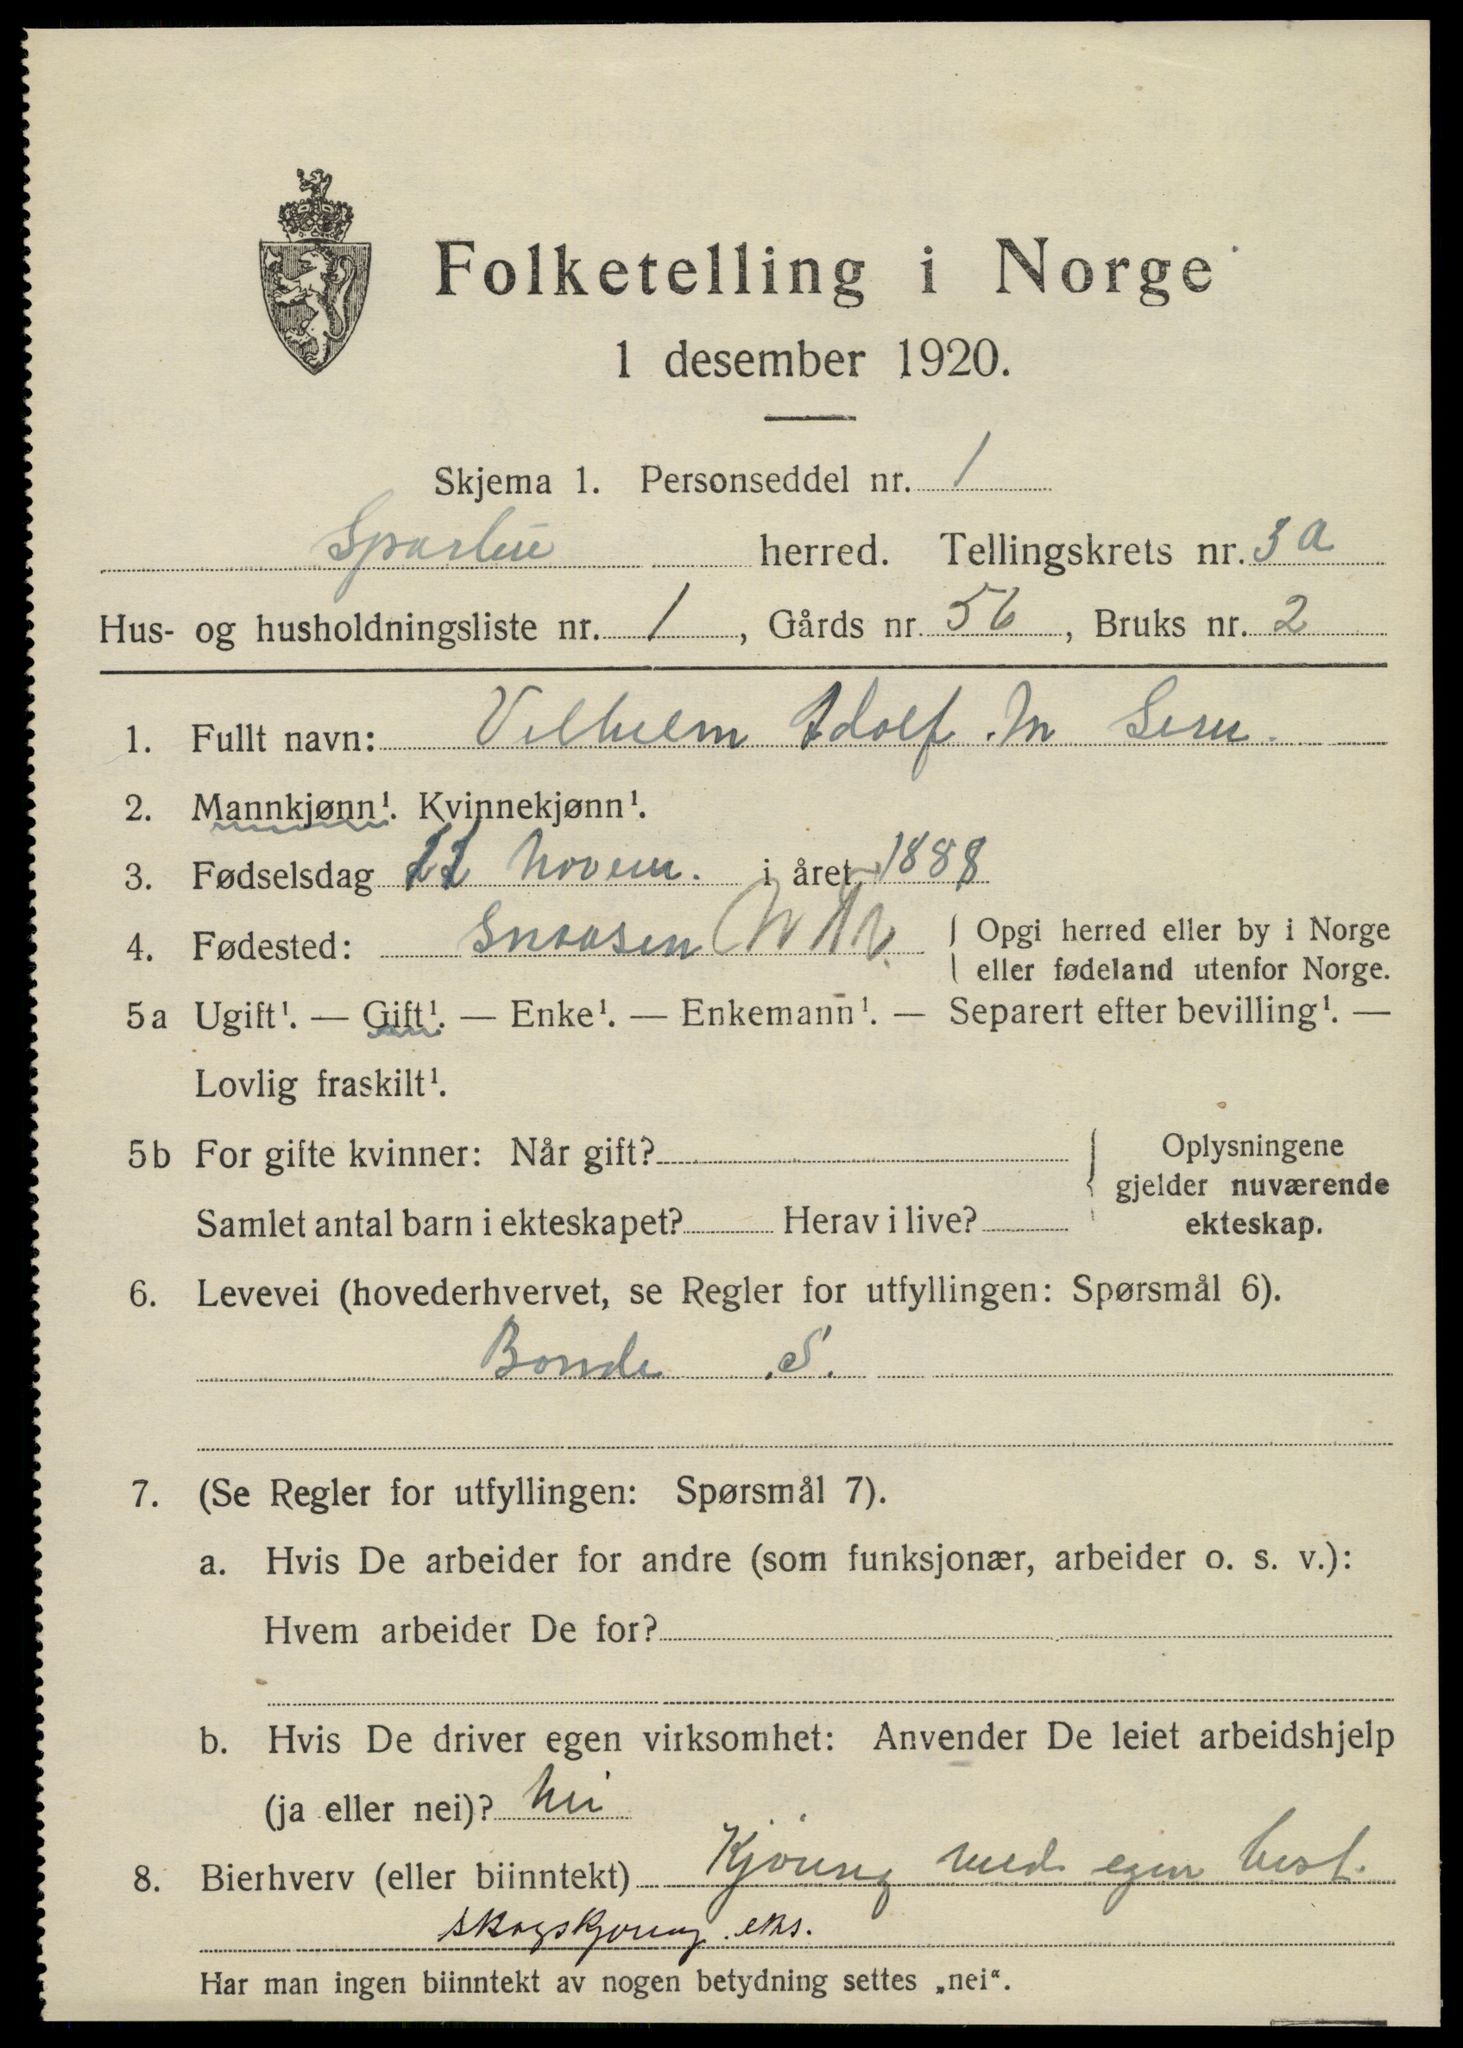 Folketelling i Norge
1 desember 1920.
Skjema 1. Personseddel nr. 1
Sparbu herred. Tellingskrets nr. 3a
Hus- og husholdningsliste nr. 1, Gårds nr. 56, Bruks nr. 2
1. Fullt navn: Vilhelm Adolf M
2. Mannkjønn¹. Kvinnekjønn¹.
3. Fødselsdag 22 Novem. i året 1888
4. Fødested: Snaasen N Tr. Opgi herred eller by i Norge
eller fødeland utenfor Norge.
5a Ugift¹. — Gift¹. — Enke¹. — Enkemann¹. — Separert efter bevilling¹. —
Lovlig fraskilt¹.
5b For gifte kvinner: Når gift? Oplysningene
gjelder nuværende
Samlet antal barn i ekteskapet? Herav i live? ekteskap.
6. Levevei (hovederhvervet, se Regler for utfyllingen: Spørsmål 6).
Bonde S.
7. (Se Regler for utfyllingen: Spørsmål 7).
a. Hvis De arbeider for andre (som funksjonær, arbeider o. s. v.):
Hvem arbeider De for?
b. Hvis De driver egen virksomhet: Anvender De leiet arbeidshjelp
(ja eller nei)? Nei
8. Bierhverv (eller biinntekt) Kjöring med egen hest.
skogskjöring eks.
Har man ingen biinntekt av nogen betydning settes „nei“.